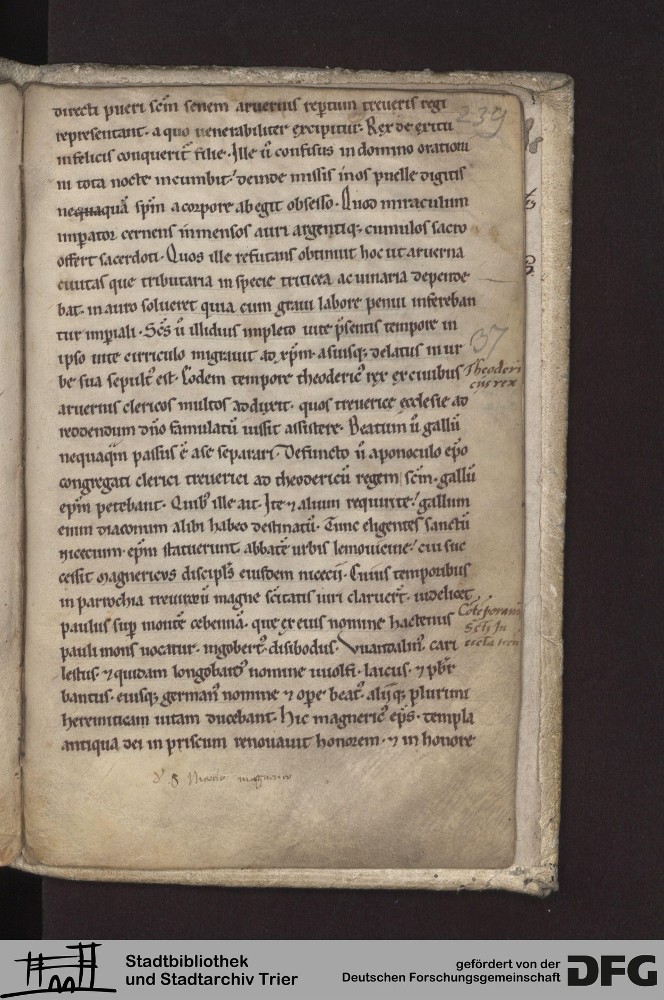 directi pueri scm̄ senem aruernis reptum treueris regi
representant· a quo uenerabiliter excipitur· Rex de exitu
infelicis conquerit̄ filie· Ille ū confisus in domino orationi
ni tota nocte incumbit· deinde missis in os puelle digitis
nequaquā spm̄ a corpore abegit obsesso· Quod miraculum
impator cernens inmensos auri argentiq; cumulos sacro
offert sacerdoti· Quos ille refutans obtinuit hoc ut aruerna
ciuitas que tributaria in specie triticea ac uinaria depende
bat· in auro solueret quia cum graui labore penui infereban
tur impiali· Scs̄ ū illidius impleto uite p̄sentis tempore in
ipso uite curriculo migrauit ad xp̄m· a suisq; delatus in ur
be sua sepult' est· Eodem tempore theoderic' rex ex ciuibus
aruernis clericos multos adduxit· quos treuerice ecclesie ad
reddendum dn̄o famulatū iussit assistere· Beatum ū gallū
nequaqm̄ passus ē a se separari· Defuncto ū aponoculo ep̄o
congregati clerici treuerici ad theodericū regem scm̄· gallū
ep̄m petebant· Quib' ille ait· Ite & alium requirite· gallum
enim diaconum alibi habeo destinatū· Tunc eligentes sanctū
nicecium· ep̄m statuerunt abbatē urbis lemouicine· cui suc
cessit magnericus discipls̄ eiusdem nicecii· Cuius temporibus
in parrochia treuiroꝝ magne sc̄itatis uiri claruer̄t· uidelicet
paulus sup montē cebennā· que ex eius nomine hactenus
pauli mons uocatur· ingobert'· disibodus· Vuandalin'· cari
lestus· & quidam longobard' nomine uuolfi· laicus· & pbr̄
bantus· eiusq; german' nomine & ope beat'· aliiq; plurimi
heremiticam uitam ducebant· Hic magneric' ep̄s· templa
antiqua dei in priscum renouauit honorem· & in honore
239
37
Theoderi
cus rex
DFG
Stadtbibliothek
und Stadtarchiv Trier
gefördert von der
Deutschen Forschungsgemeinschaft